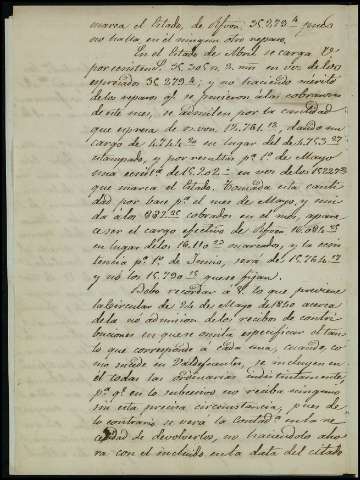 marca el Estado, de Rfvon, 35.273 pues
no halla en el ningun otro reparo.
En el Estado de Abril se carga
por existencia 35.305 n. 2 mrs en vez de los
espresados 35.273; y no haciendo mérito
de los reparos qe. se pusieron á las cobranzas
de este mes, se admiten por la cantidad
que espresa de rs. von. 12.761, dando un
cargo de 4.744 en lugar del de 4.753
estampado, y por resultas pa. 1o. de Mayo
una existencia de 15.202 en vez de los 15.227
que marca el Estado. Tomada esta canti-
dad por base pa. el mes de Mayo, y uni-
da á los 882 cobrados en el mes, apare-
ce ser el cargo efectivo de Rfvon 16.084
en lugar de los 16.110 marcados, y la exis-
tencia pa. 1o. de Junio, será de 15.764
y no los 15.790 que se fijan.
Debo recordar á V. lo que previene
la circular de 24 de Mayo de 1850 acerca
de la no admision de los recibos de contri-
buciones en que se omita especificar el tan-
to que corresponde á cada una, cuando, co-
mo sucede en Valdefuentes, se incluyen en
el todas las ordinarias indistintamente,
pa. qe. en lo subcesivo no reciba ninguno
sin esta precisa circunstancia, pues de
lo contrario se verá la Contada. en la ne-
cesidad de devolverlos, no haciéndolo aho-
ra con el incluido en la data del citado